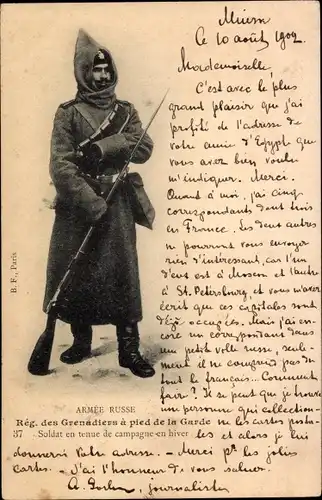 le 10 août 1902
Mademoiselle,
C'est avec le plus
grand plaisir que j'ai
profité de l'adresse de
votre amie d'Egypte que
vous avez bien voulu
m'indiquer. Merci.
Quant à moi, j'ai cinq
correspondants dont trois
en France. Les deux autres
ne pourront vous envoyer
rien d'intéressant, car l'un
d'eux est à Moscou et l'autre
à St. Petersbourg, et vous m'avez
écrit que ces capitales sont
déjà occupées. Mais j'ai en-
core un correspondant dans
une petite ville russe, seule-
ment il ne comprend pas du
tout le français... Comment
faire? Il se peut que je trouve
une personne qui collection-
ne les cartes posta-
les et alors je lui
donnerai votre adresse. – Merci pr. les jolies
cartes. – J'ai l'honneur de vous saluer.
journaliste
B. F., Paris
ARMÉE RUSSE
Rég. des Grenadiers à pied de la Garde
37 Soldat en tenue de campagne en hiver